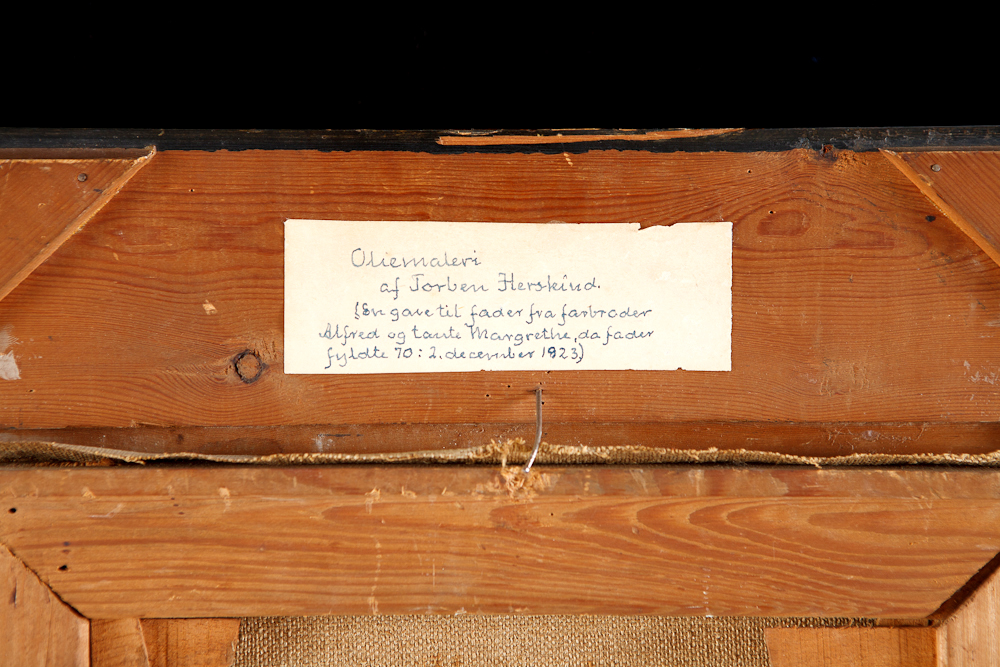 Oliemaleri
af Torben Herskind.
(En gave til fader fra farbroder
Alfred og tante Margrethe, da fader
fyldte 70: 2. december 1923)